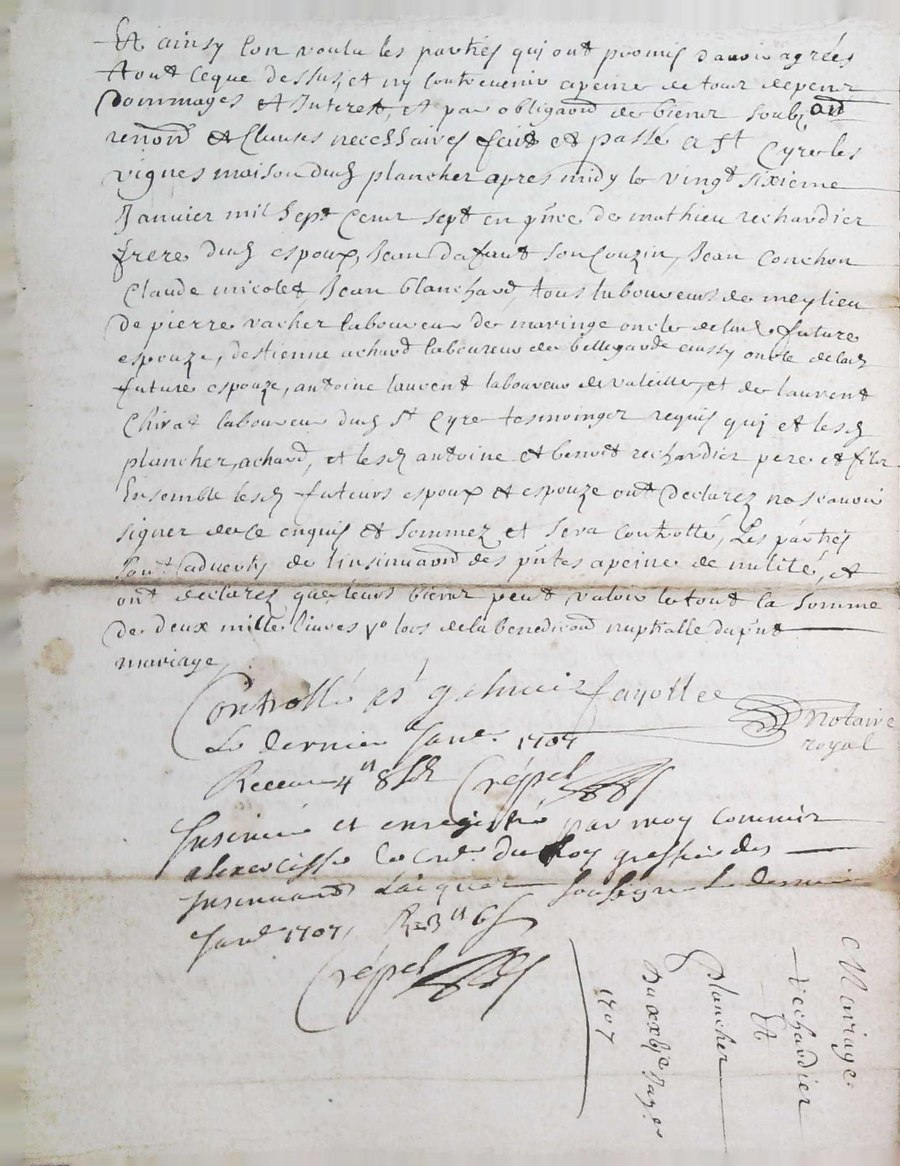 Et ainsy lon voulu les parties qui ont promis d'avoir agrées
tout ceque dessus, et ny contrevenir apeine de tous depens
Dommages et Interest, et par obligaond de biens soubz and
renond et Clauses necessaires fait et passé a st Cyre les
vignes maison dud plancher apres midy le vingt sixieme
Janvier mil sept cens sept en pnce de mathieu richardier
frere dud espoux, Jean dafaut son Couzin, Jean Conchon
Claude nicolet Jean blanchard, tous laboureurs de meylieu
De pierre vacher laboureur de maringe oncle de lad future
espouze, destienne achard laboureur de bellegarde aussy oncle de lad
future espouze, antoine laurent laboureur de valeille, et de laurent
Chirat laboureur dud st Cyre tesmoings requis qui et lesd
plancher, achard, et lesd antoine et benoit richardier pere et fils
Ensemble lesd futeurs espoux et espouze ont declarez ne scavoir
signer de ce enquis et sommez et sera controllé, Les parties
sont advertis de linsinuaond des pntes apeine de nulité, et
ont declarez que leurs biens peut valoir le tout la somme
De deux mille livres lors de la benediond nuptialle du pnt
mariage
Controllé a st galmier fayolle
Notaire
royal
Le dernier Janer 1707
Receu 4 ll 8 s
Crépel
Insinué et enregistré par moy commis
alexercisse le du Roy greffier des
Insinuaond Laiques soussigné Le dernier
Janer 1707, R 6 s
Crépel
Mariage
richardier
Et
plancher
Du xxbje Janer
1707